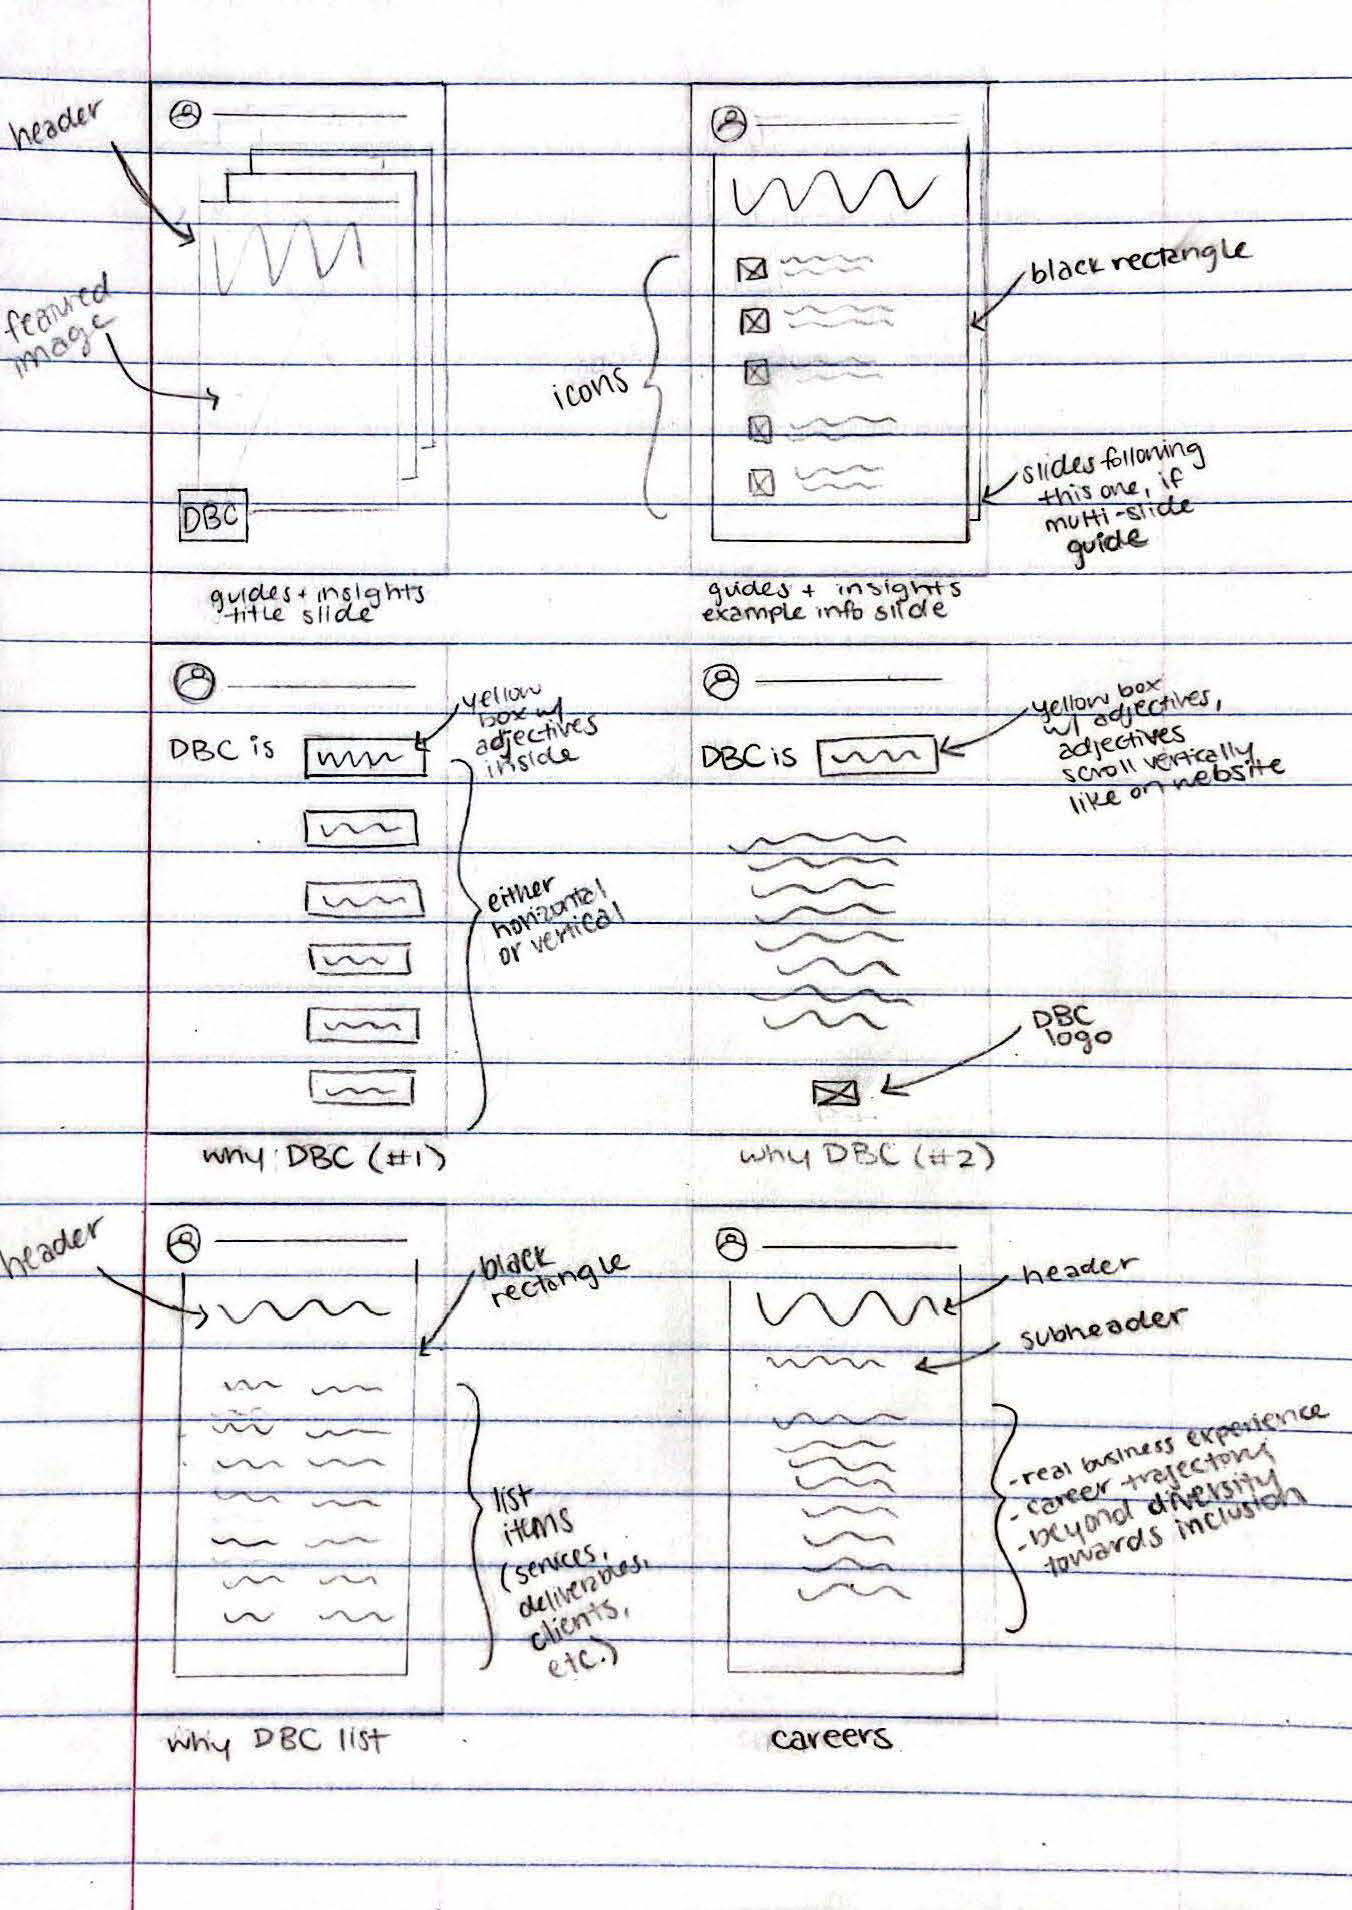 header
featured
image
DBC
guides + insights
title slide
icons
black rectangle
slides following
this one, if
multi-slide
guide
guides + insights
example info slide
DBC is
yellow
box w/
adjectives
inside
either
horizontal
or vertical
why DBC (#1)
DBC is
yellow box
w/ adjectives,
adjectives
scroll vertically
like on website
DBC
logo
why DBC (#2)
header
black
rectangle
list
items
(services,
deliverables,
clients,
etc.)
why DBC list
header
subheader
- real business experience
- career trajectory
- beyond diversity
towards inclusion
careers